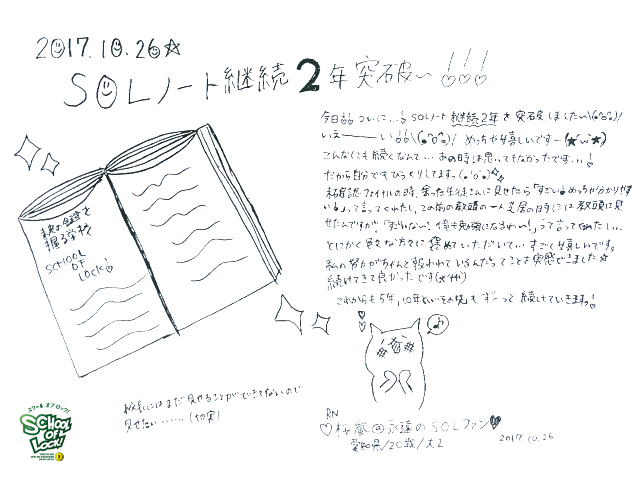 2017.10.26☆
SOLノート継続2年突破〜!!!
今日!! ついに...! SOLノート継続2年を突破しました〜\(^o^)/
いぇーーーい!!\(^o^)/ めっちゃ嬉しいです〜(★'ω'★)
こんなにも続くなんて... あの時は思ってもなかったです...!
だから自分でもびっくりしてます。
未確認フェスティバルの時、会った生徒さんに見せたら「すごい! めっちゃ分かりやす
い!」って言ってくれたし、この前の教頭の一人芝居の日 とーやま教頭に見
せたんですが
とにかく色々な方々に褒めていただいて... すごく嬉しいです。
私の努力がちゃんと報われているんだなってことを実感できました☆
続けてきて良かったです
これからも5年、10年といわず先もずーっと続けていきますっ!
未来の鍵を
握る学校
SCHOOL
OF
LOCK!
校長にはまだ見せることができてないので
見せたい......(切実)
♪
RN
♡桜蘭@永遠のSOLファン♥
愛知県/20歳/大2
2017.10.26
スクール オブ ロック!
SCHOOL
OF
LOCK!